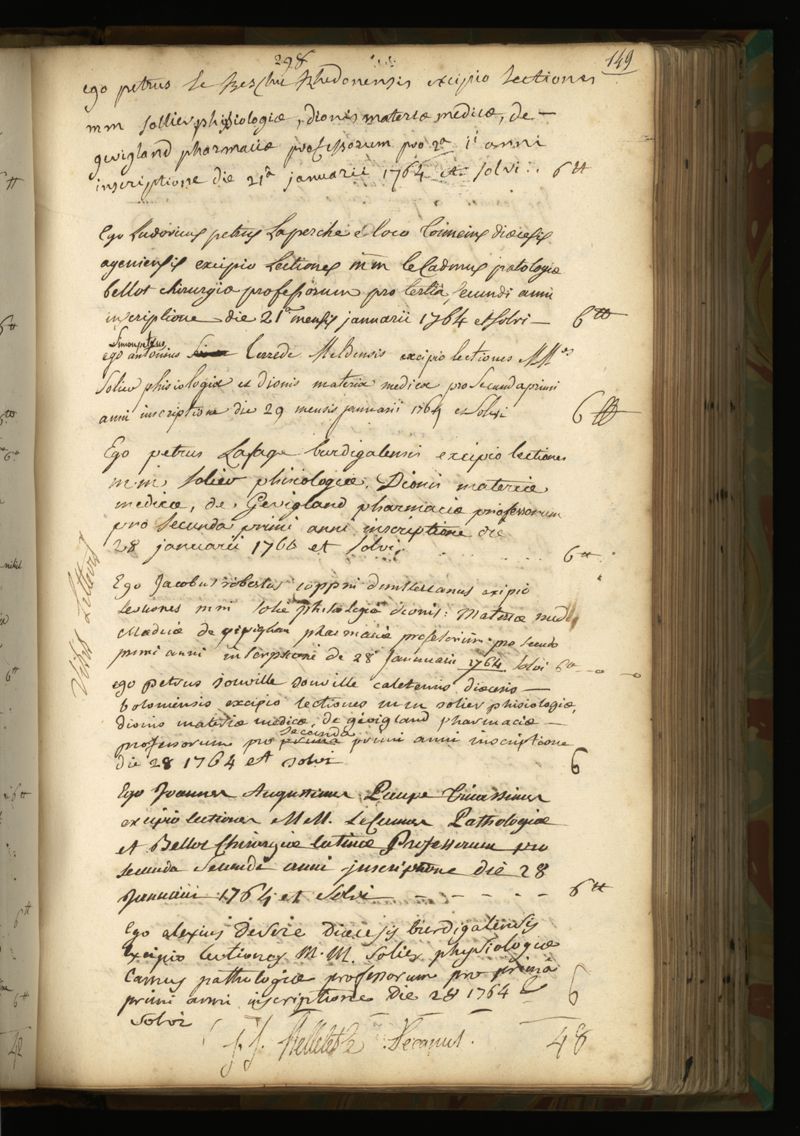 298
149
ego petrus le Rhedonensis excipio lectiones
mm sollier phisiologiæ, dionis materiæ medicæ, de
gevigland pharmaciæ professorum pro 2a 1i anni
inscriptione die 21a januarii 1764 et solvi. 6tt
Ego Ludovicus petrus Laperche è loco diæcesis
agenensis excipio lectiones mm le Camus patologiæ
bellot chirurgiæ professorum pro tertia secundi anni
inscriptione die 21a mensis januarii 1764 et solvi 6tt
ego antonius Meldensis excipio lectiones MMos
Solier phisiologiæ et dionis materiæ medicæ pro secunda primi
anni inscriptione die 29 mensis januarii 1764 et solvi 6tt
Ego petrus Lafage burdigalensis excipio lectiones
m.m solier phisiologiæ, Dionis materiæ
medicæ, de Gevigland pharmaciæ professorum
pro secunda primi anni inscriptione die
28 januarii 1760 et solvi. 6tt
Vidit Litteras
Ego Jacobus robertus coppni exipio
lectiones mm solié phisilogiæ dionis. Materiæ medi
Madiciæ de gevighan pharmaciæ profesorum pro secundo
primi anni inscriptioni de 28 Januarii 1764 solvi 6tt
ego petrus jouville diæcesis
boloniensis excipio lectiones m m solier phisiologiæ,
dionis materiæ medicæ, de gévigland pharmaciæ
secunda
professorum pro prima primi anni inscriptione
die 28 1764 et solvi 6
Ego Joannes Augustinus Paupe
excipio lectiones M.M. LeCamus Pathologiæ
et Bellot Chirurgiæ latinæ Professorum pro
secunda secundi anni inscriptione die 28
Januarii 1764 et solvi 6tt
Ego alexius diæcesis burdigalensis
Excipio lectiones M.M. Solier physiologiæ
Camus pathologiæ professorum pro prima
primi anni inscriptione die 28 1764 &
solvi 6
Decanus. 48